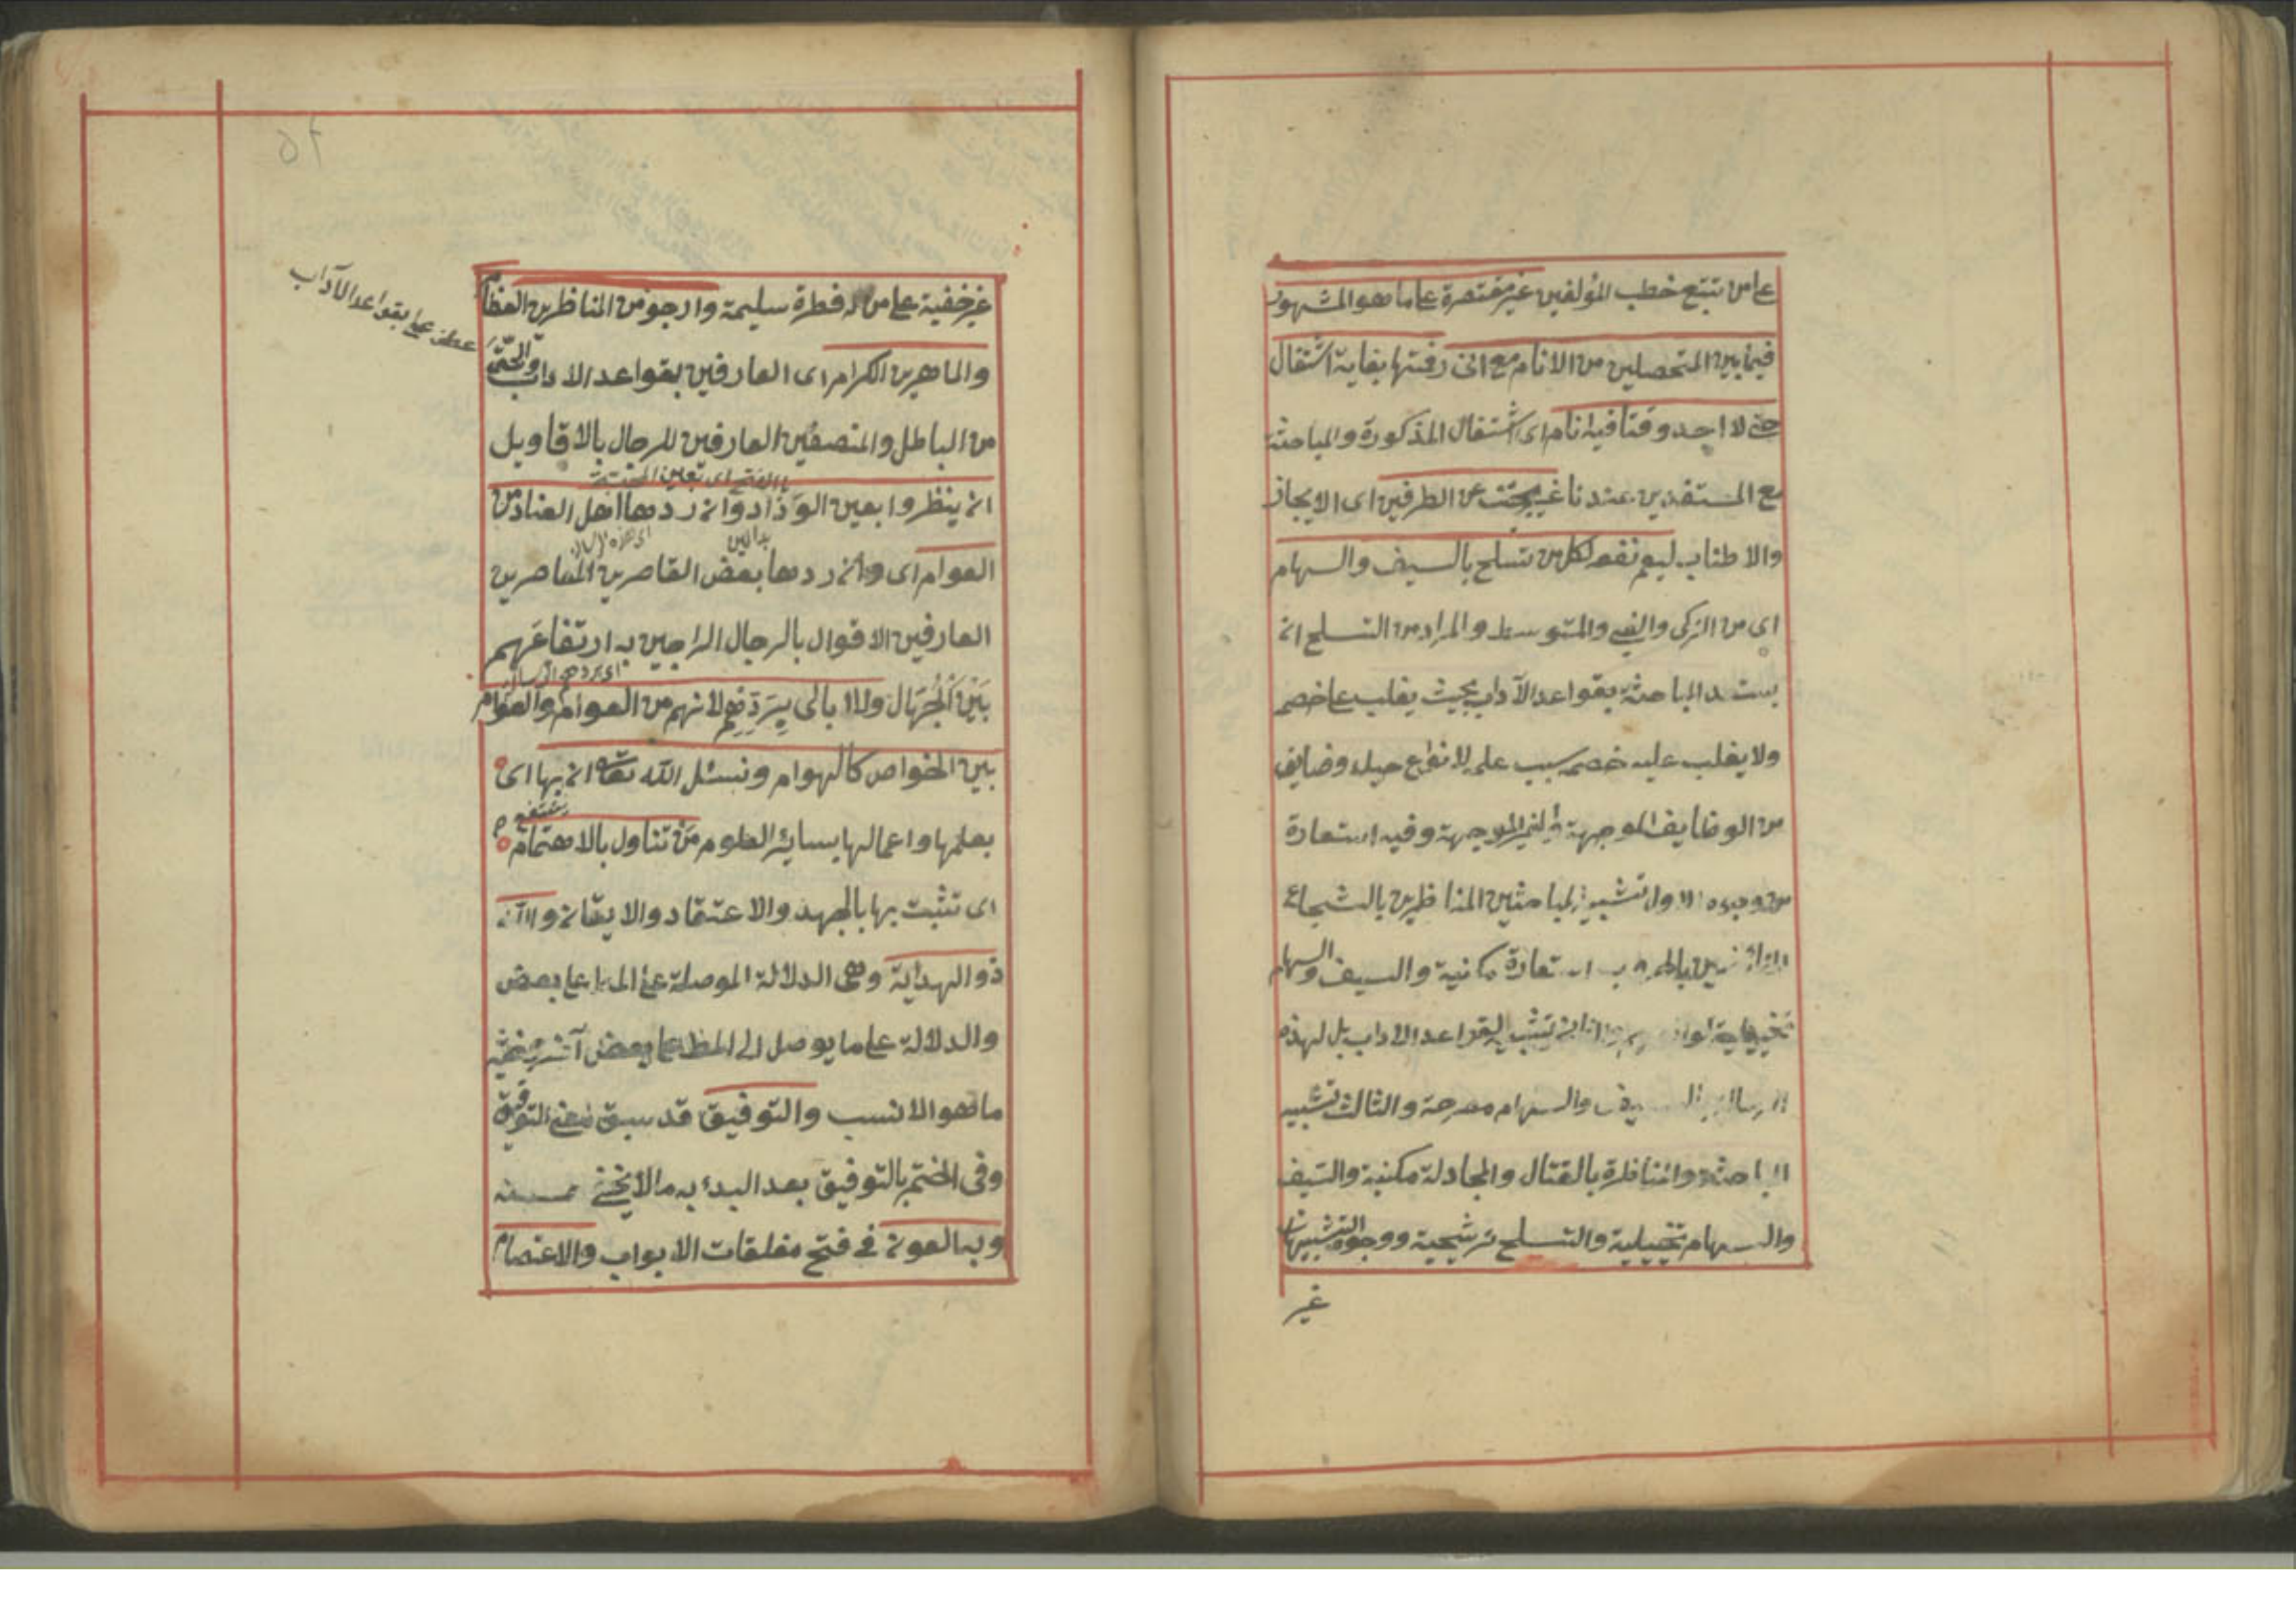 على من تتبع خطب المؤلفين غير مقتصرة على ما هو المشهور
فيما بين المتحصلين من الانام مع انى رقمتها بغاية اشتغال
حتى لا اجد وقتا فيه انام اى اشتغال المذكورة والمباحثة
مع المستفدين عندنا غير عن الطرفين اى الايجاز
والاطناب ليعم نفعه لكل من تسلح بالسيف والسهام
اى من الزكى والغبى والمتوسط والمراد من التسلح ان
يستعد المباحثة بقواعد الآداب بحيث يغلب على خصمه
ولا يغلب عليه خصمه بسبب علمه لانواع حيله وضايف
من الوظايف الموجهة او الغير الموجهة وفيه استعارة
من وجوه الاول تشبيه المباحثين المناظرين بالشجاع
بالحرب استعارة مكنية والسيف والسهام
تخييلية تشبيه لقواعد الاداب بل لهذه
الرسالة بالسيف والسهام مصرحة والثالث تشبيه
المباحثة والمناظرة بالقتال والمجادلة مكنية والسيف
والسهام تخييلية والتسلح ترشيحية ووجوه التشبيهات
غير
غير خفية على من له فطرة سليمة وارجو من المناظرين العظام
والماهرين الكرام اى العارفين بقواعد الاداب والحق
عطف على بقواعد الآداب
من الباطل والمنصفين العارفين للرجال بالاقاويل
ان ينظروا بعين الوداد وان ردها اهل العناد من
بدالين
اى هذه الرسالة
العوام اى وان ردها بعض القاصرين المعاصرين
العارفين الاقوال بالرجال الراجين به ارتفاعهم
اى بردهم الرسالة
بين الجهال ولا ابالى بردهم لانهم من العوام والعوام
بين الخواص كالهوام ونسئل الله تعالى ان بها اى
ينتفع
بعلمها واعمالها بسائر العلوم من تناول بالاهتمام
اى تثبت بها بالجهد والاعتقاد والايقان والله
ذو الهداية وهى الدلالة الموصلة على بعض
والدلالة على ما يوصل الى المط على بعض آخر
ما هو الانسب والتوفيق قد سبق معنى التوفيق
وفى الختم بالتوفيق بعد البدء به ما لا يخفى حسنه
وبه العون فى فتح مغلقات الابواب والاعتصام